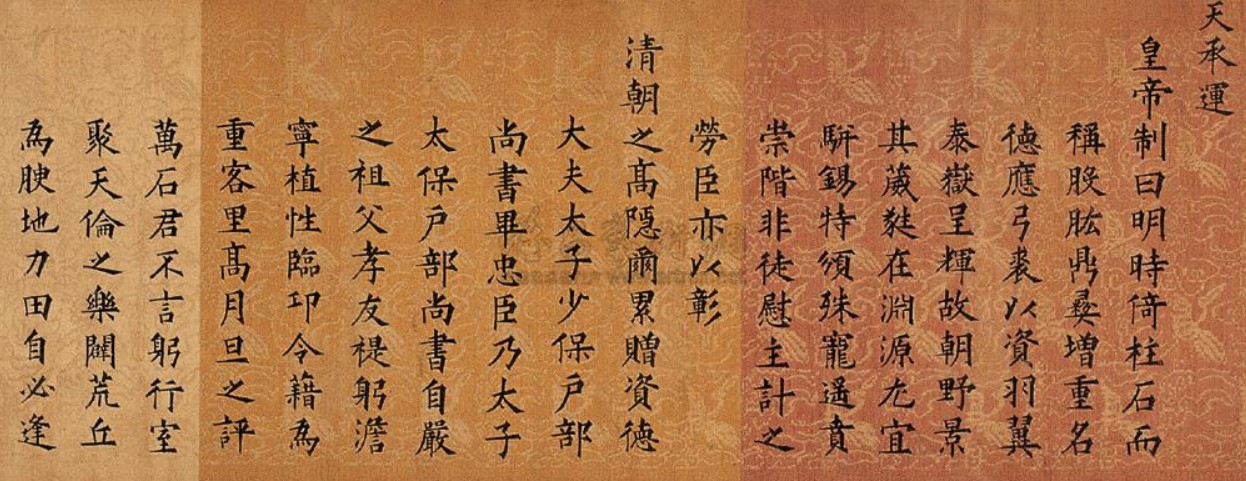 天承運
皇帝制曰明時倚柱石而
稱股肱鼎彛增重名
德應弓裘以資羽翼
泰嶽呈輝故朝野景
其葳蕤在淵源尤宜
駢錫特頒殊寵遥賁
崇階非徒慰主計之
勞臣亦以彰
清朝之高隱爾累贈資德
大夫太子少保戶部
尚書畢忠臣乃太子
太保戶部尚書自嚴
之祖父孝友禔躬澹
寧植性臨卭令籍為
重客里高月旦之評
萬石君不言躬行室
聚天倫之樂闢荒丘
為腴地力田自必逢